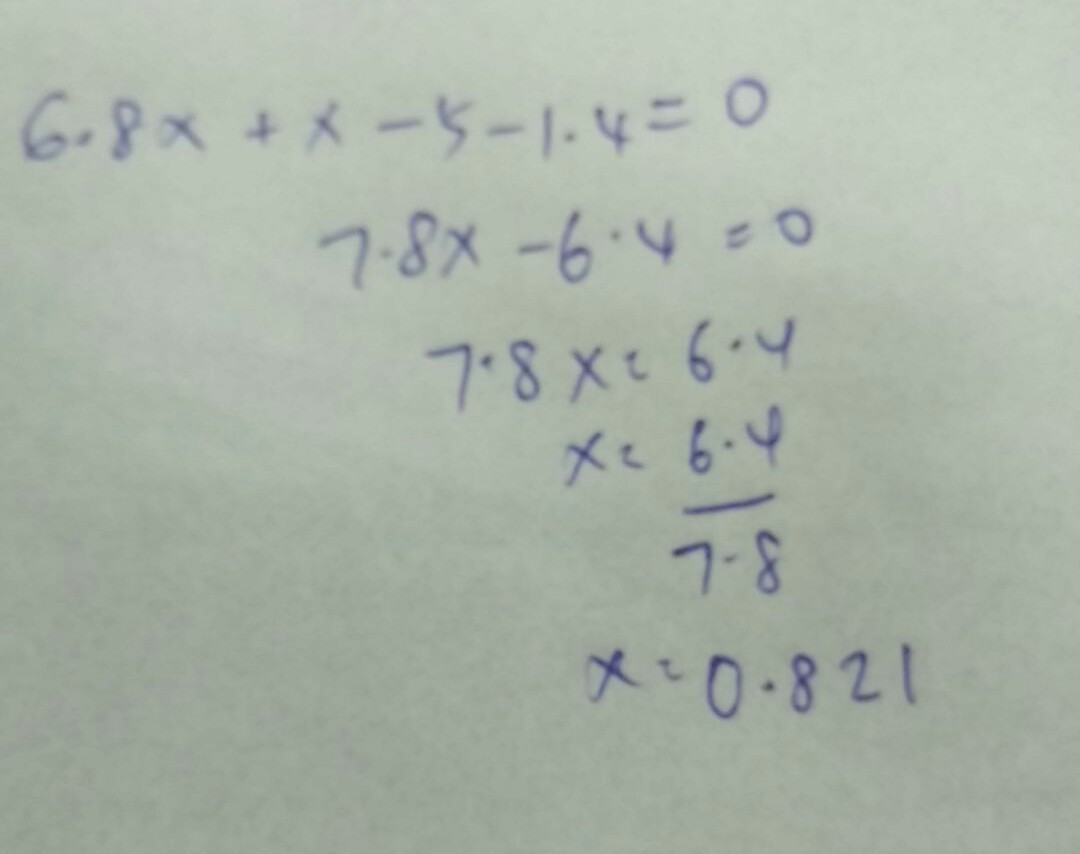 6.8x + x - 5 - 1.4 = 0
7.8x - 6.4 = 0
7.8x = 6.4
x = 6.4
7.8
x = 0.821